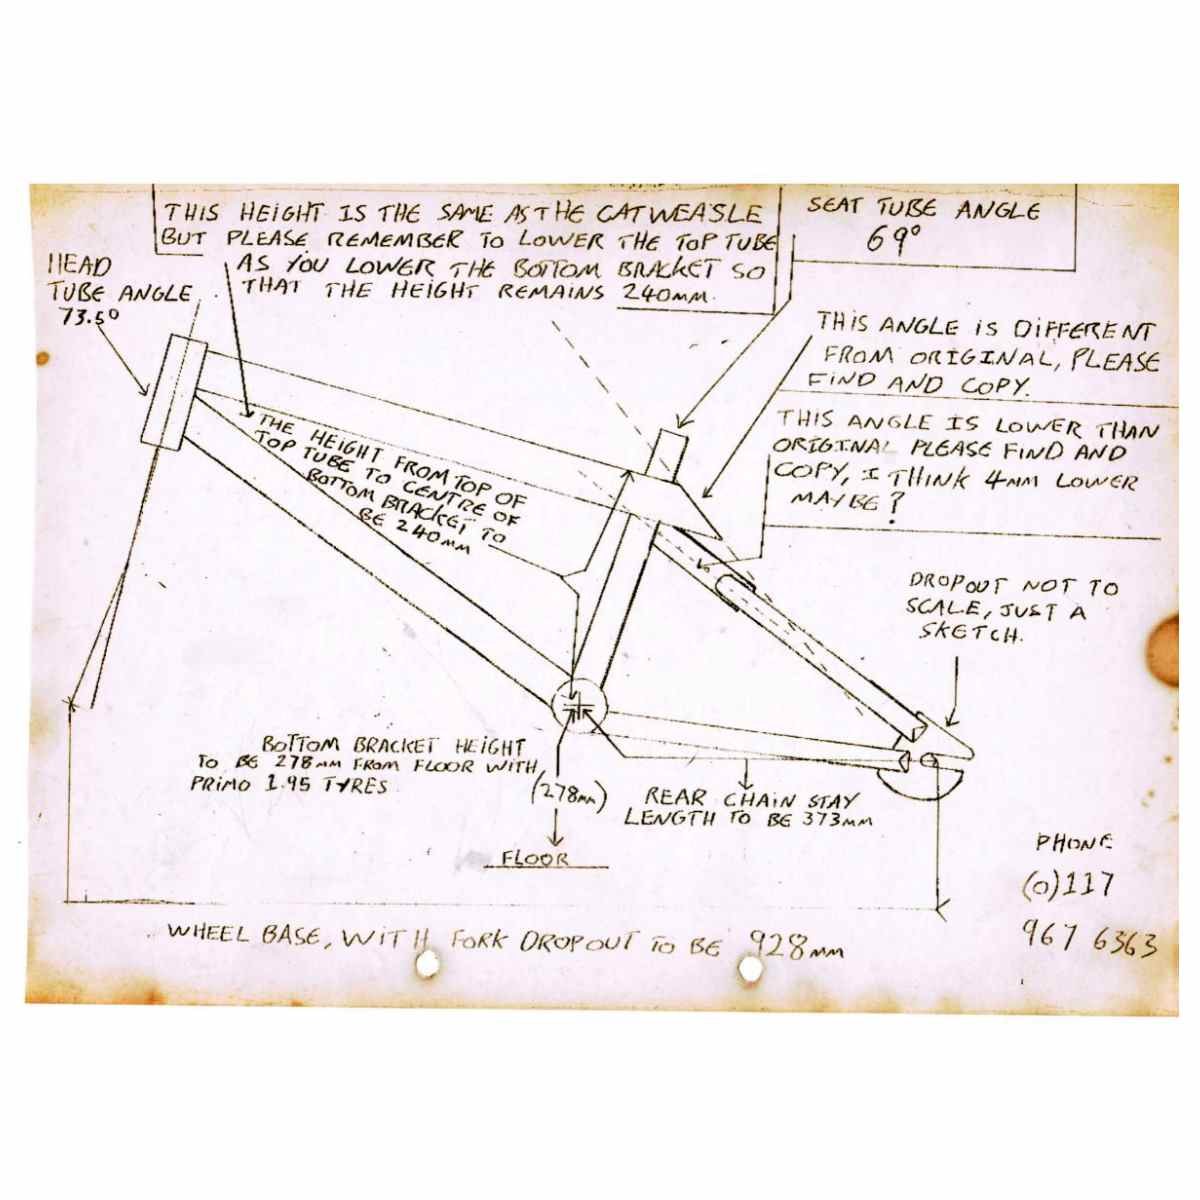 THIS HEIGHT IS THE SAME AS THE CATWEASLE
BUT PLEASE REMEMBER TO LOWER THE TOP TUBE
AS YOU LOWER THE BOTTOM BRACKET SO
THAT THE HEIGHT REMAINS 240MM.
SEAT TUBE ANGLE
69°
HEAD
TUBE ANGLE
73.5°
THIS ANGLE IS DIFFERENT
FROM ORIGINAL, PLEASE
FIND AND COPY.
THIS ANGLE IS LOWER THAN
ORIGINAL PLEASE FIND AND
COPY, I THINK 4MM LOWER
MAYBE?
THE HEIGHT FROM TOP OF
TOP TUBE TO CENTRE OF
BOTTOM BRACKET TO
BE 240MM
DROPOUT NOT TO
SCALE, JUST A
SKETCH.
BOTTOM BRACKET HEIGHT
TO BE 278MM FROM FLOOR WITH
PRIMO 1.95 TYRES
(278MM)
FLOOR
REAR CHAIN STAY
LENGTH TO BE 373MM
PHONE
(0)117
967 6363
WHEEL BASE, WITH FORK DROPOUT TO BE 928MM